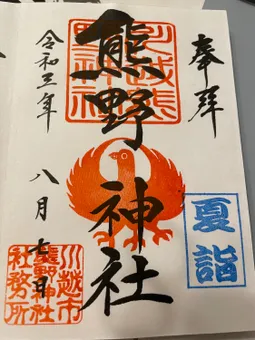 奉拝
川越熊野神社
熊野神社
夏詣
令和三年
八月七日
川越市
熊野神社
社務所